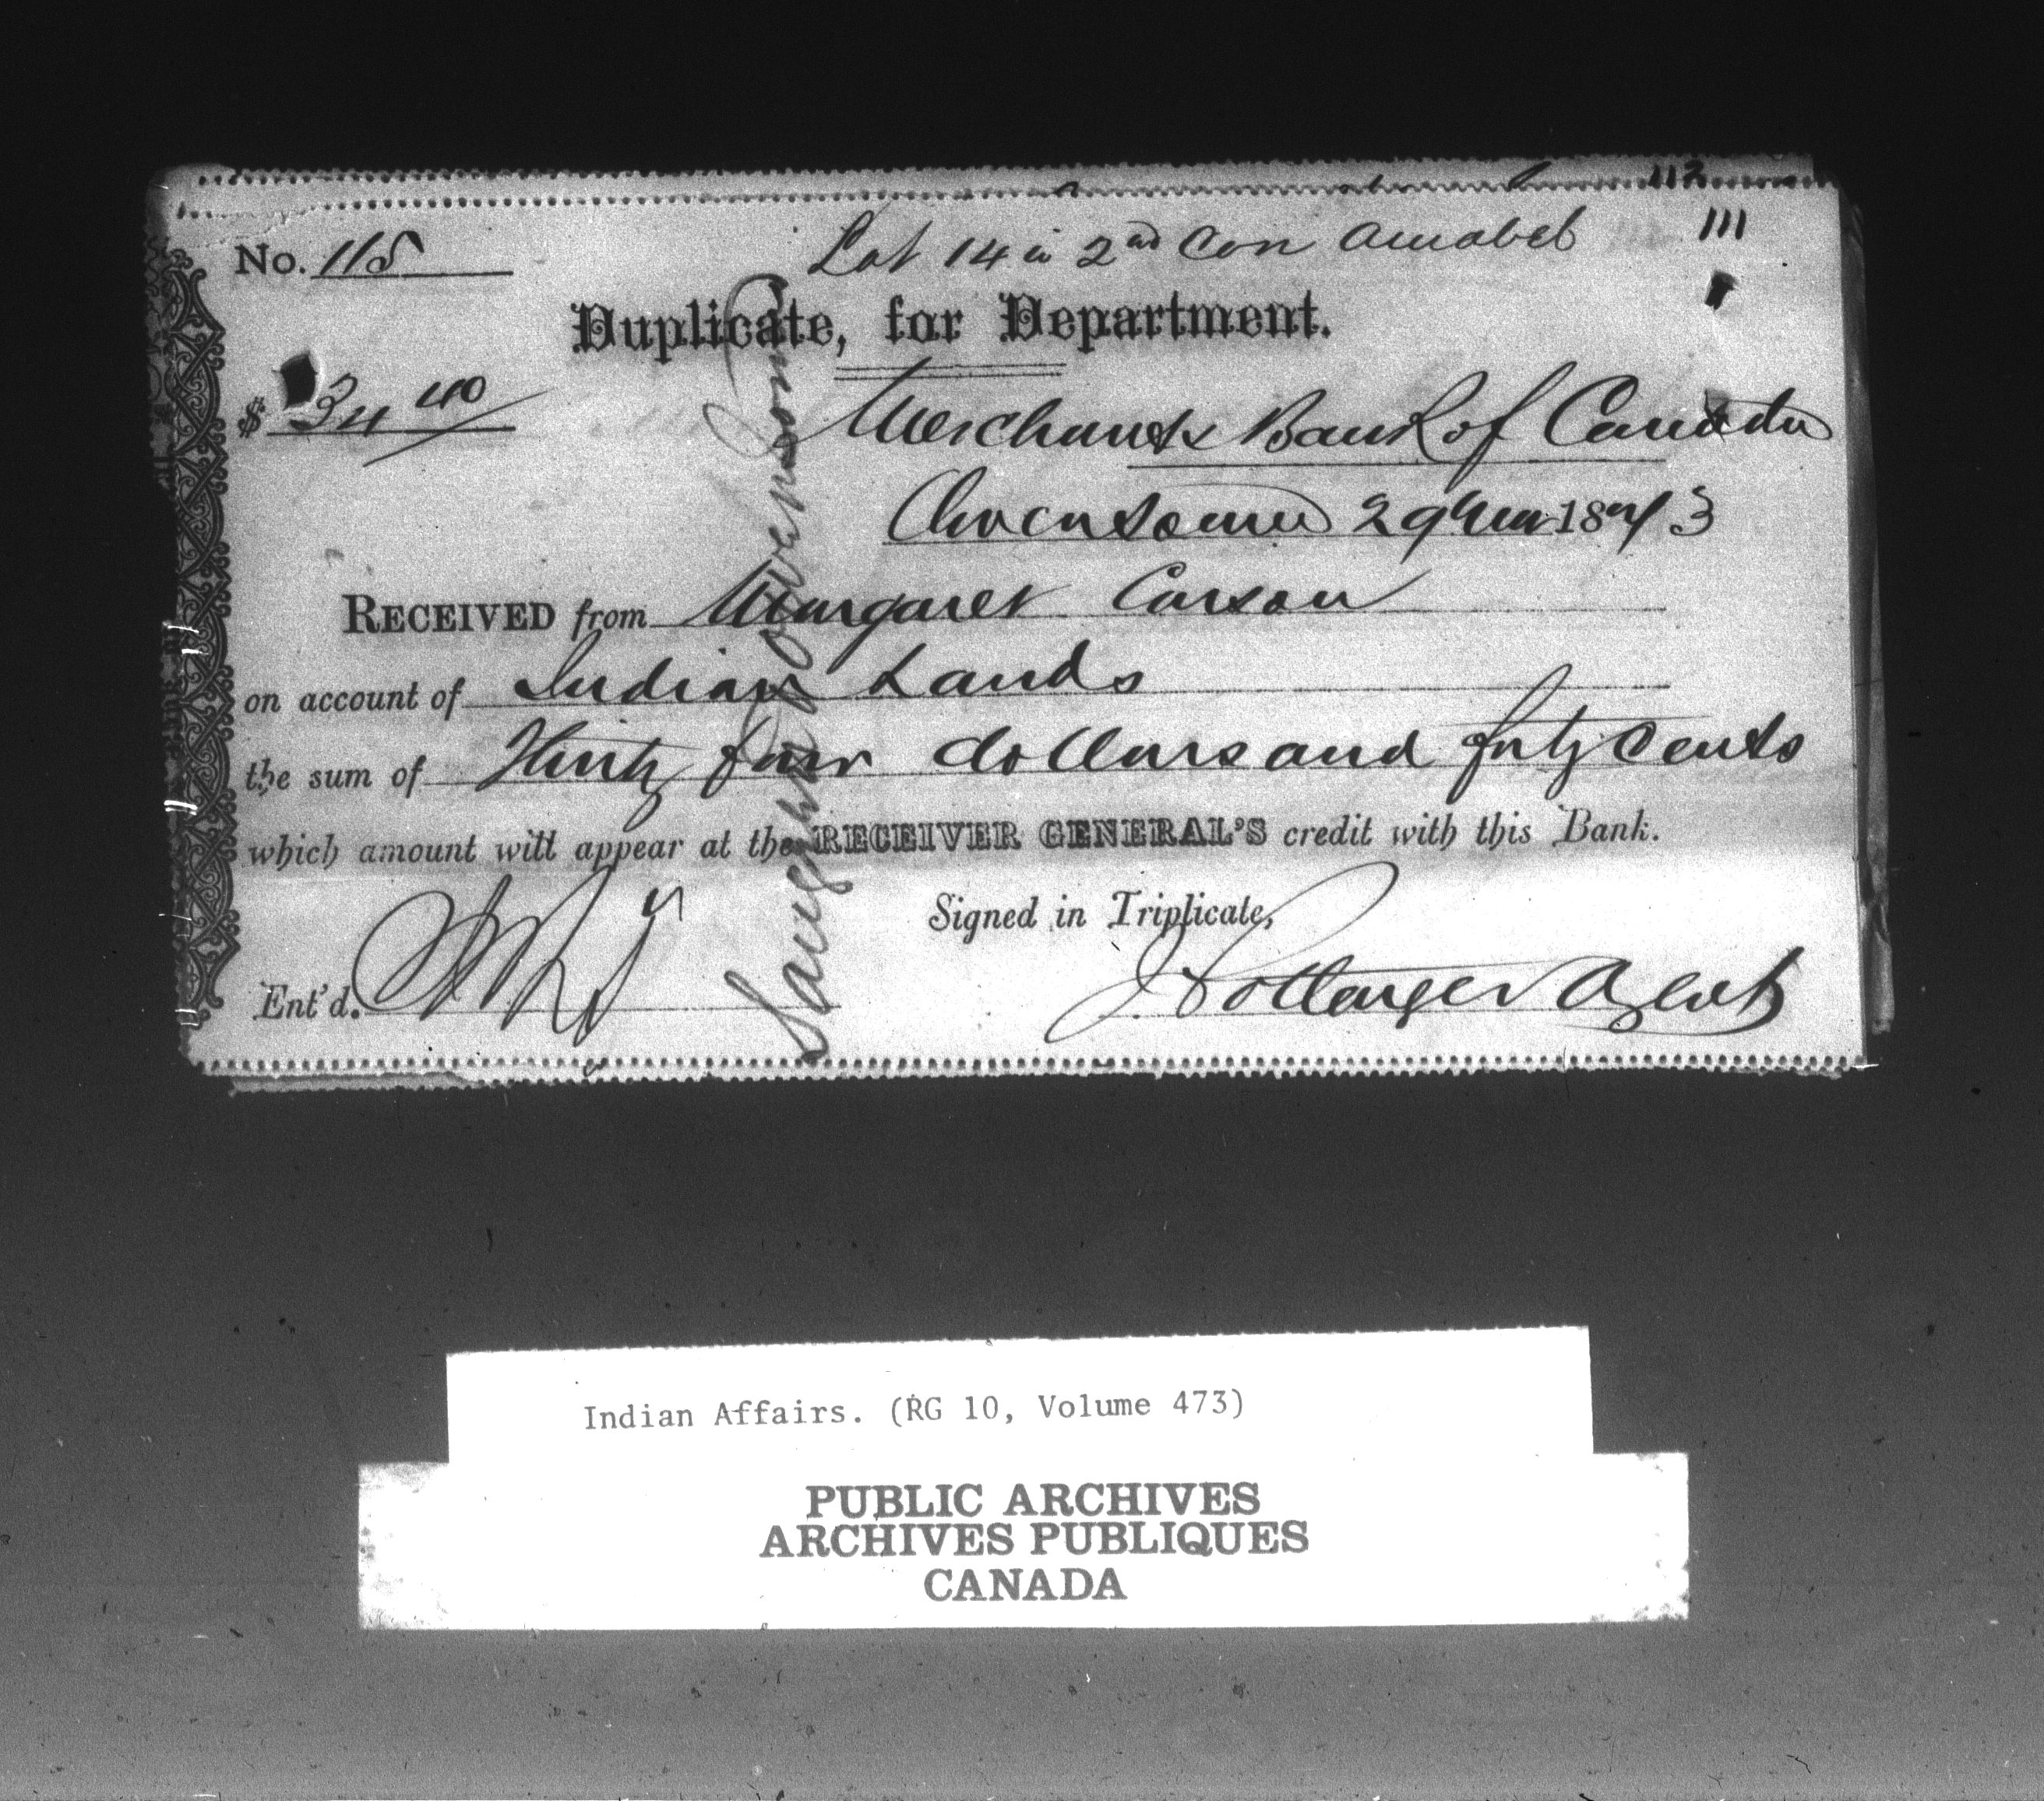 112
No. 115
Lot 14 in 2nd Con Amabel
111
Duplicate, for Department.
$ 34 40
Merchants Bank of Canada
Owensound 29 1873
RECEIVED from Margaret Carson
on account of Indian Lands
the sum of Thirty four dollars and forty cents
which amount will appear at the RECEIVER GENERAL'S credit with this Bank.
Signed in Triplicate,
Ent'd.
J Pottenger Agent
Indian Affairs. (RG 10, Volume 473)
PUBLIC ARCHIVES
ARCHIVES PUBLIQUES
CANADA